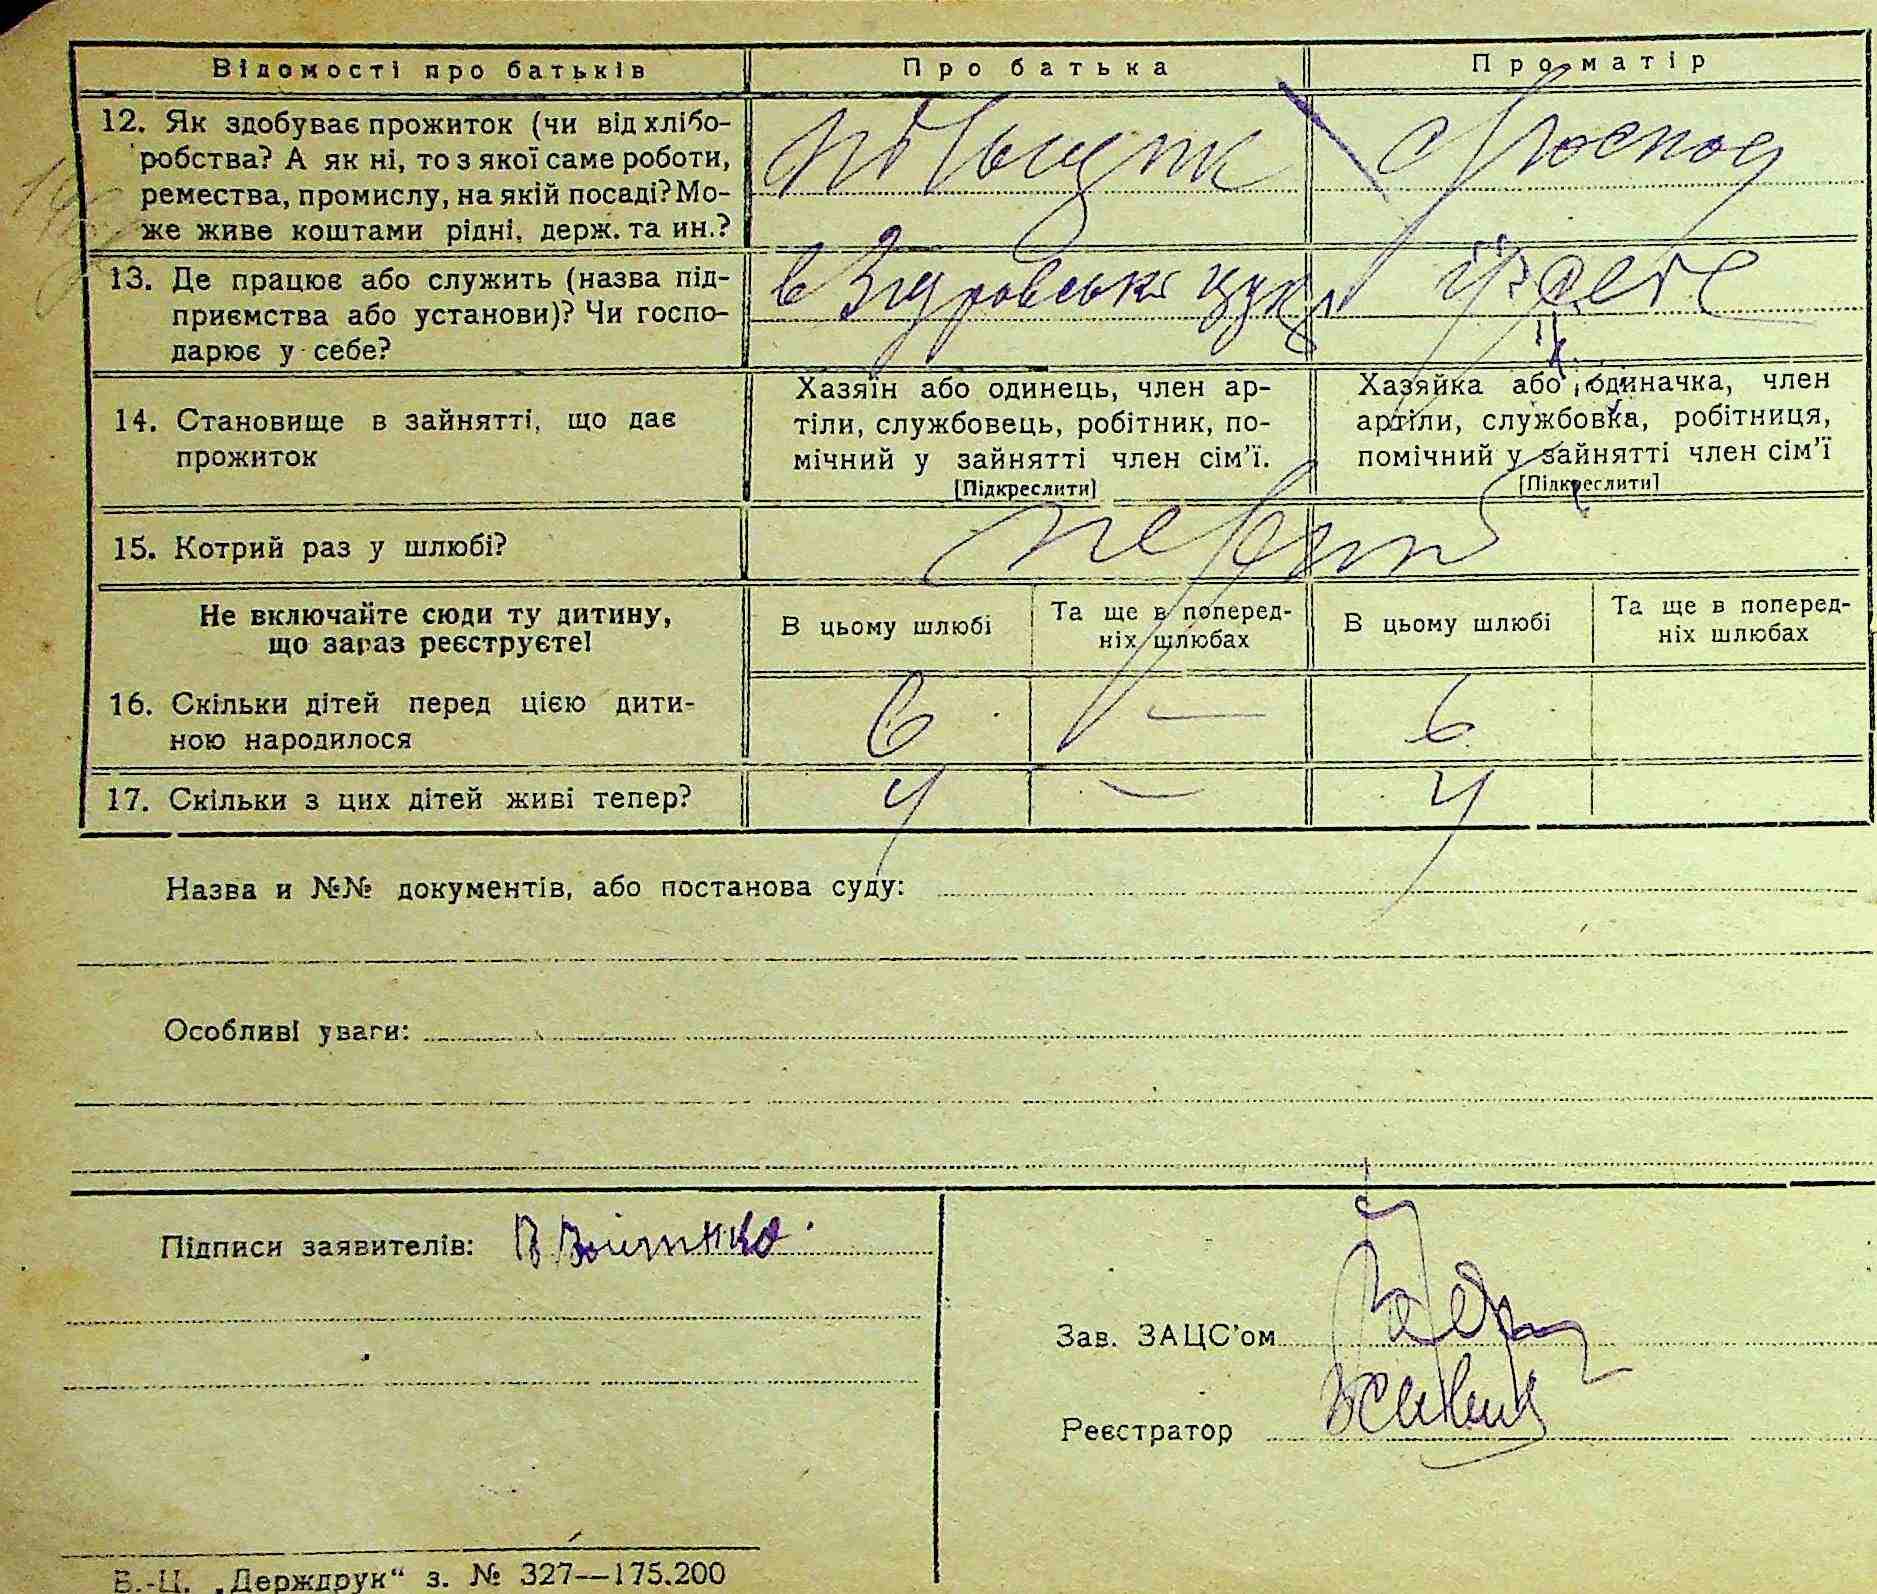 Відомості про батьків
Про батька
Про матір
12. Як здобуває прожиток (чи від хлібо-
робства? А як ні, то з якої саме роботи,
ремества, промислу, на якій посаді? Мо-
же живе коштами рідні, держ. та ин.?
13. Де працює або служить (назва під-
приємства або установи)? Чи госпо-
дарює у себе?
в Згуровськ цук
14. Становище в зайнятті, що дає
прожиток
Хазяїн або одинець, член ар-
тіли, службовець, робітник, по-
мічний у зайнятті член сім’ї.
[Підкреслити]
Хазяйка або одиначка, член
артіли, службовка, робітниця,
помічний у зайнятті член сім’ї
[Підкреслити]
15. Котрий раз у шлюбі?
первий
Не включайте сюди ту дитину,
що зараз реєструєте!
В цьому шлюбі
Та ще в поперед-
ніх шлюбах
В цьому шлюбі
Та ще в поперед-
ніх шлюбах
16. Скільки дітей перед цією дити-
ною народилося
6 — 6
17. Скільки з цих дітей живі тепер?
4 — 4
Назва и №№ документів, або постанова суду:
Особливі уваги:
Підписи заявителів:
Зав. ЗАЦС’ом
Реєстратор
В.-Ц. „Держдрук“ з. № 327—175.200